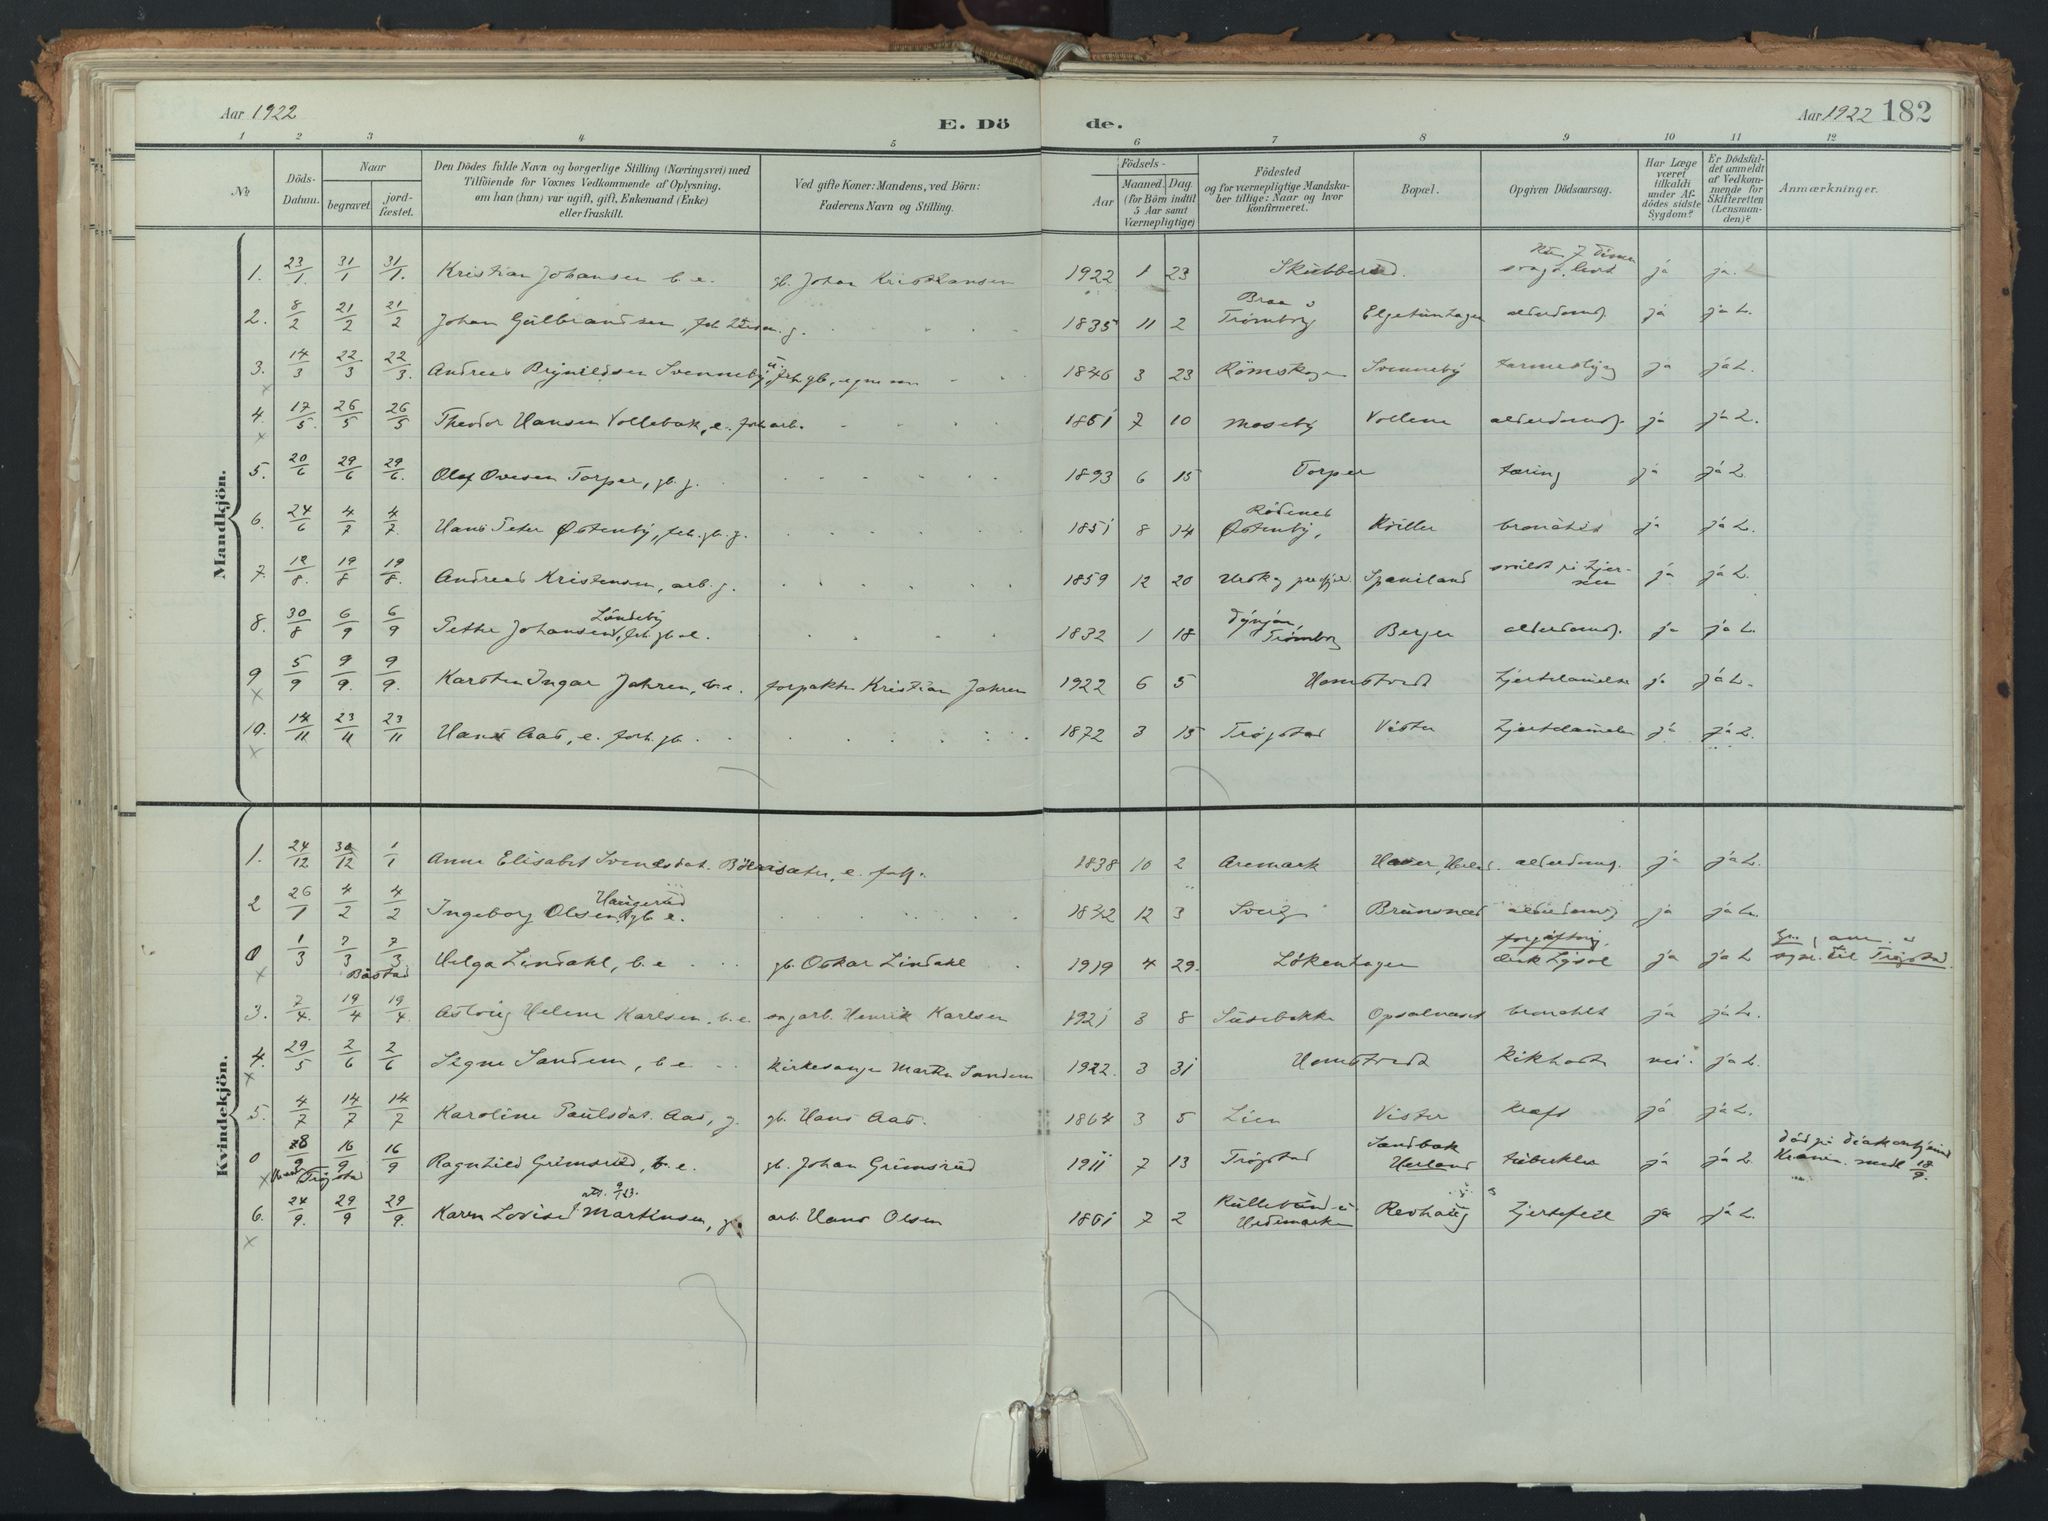 Aar 1922
E. Dö
de.
Aar 1922 182
1 2 3 4 5 6 7 8 9 10 11 12
No.
Döds-Datum.
Naar
begravet. jord-fæstet.
Den Dödes fulde Navn og borgerlige Stilling (Næringsvei) med
Tilföiende for Voxnes Vedkommende af Oplysning.
om han (hun) var ugift, gift, Enkemand (Enke)
eller fraskilt.
Ved gifte Koner: Mandens, ved Börn:
Faderens Navn og Stilling.
Födsels-
Aar
Maaned. Dag.
(for Börn indtil
5 Aar samt
Værnepligtige)
Födested
og for værnepligtige Mandska-
ber tillige: Naar og hvor
konfirmeret.
Bopæl.
Opgiven Dödsaarsag.
Har Læge
været
tilkaldt
under Af-
dödes sidste
Sygdom?
Er Dödsfal-
det anmeldt
af Vedkom-
mende for
Skifteretten
(Lensman-
den)?
Anmærkninger.
Mandkjön.
1. 23/1 31/1 31/1. Kristian Johansen b. e. gb. Johan Kristiansen 1922 1 23 Skubberud. ja ja.
2. 8/2 21/2 21/2 Johan Gulbrandsen, g. 1835 11 2 Braa i Trømborg alderdoms. ja ja L.
3. 14/3 22/3 22/3. Andreas Brynildsen Svenneby, u. 1846 3 23 Römskogen Svenneby ja ja L.
4. 17/5. 26/5 26/5 Theodor Hansen Vollebak, e. forh. arb. 1851 7 10 Moseby Vollene alderdoms. ja ja L.
5. 20/6 29/6 29/6. Olaf Ovesen Torper, gb. g. 1893 6 15 Torper tæring ja ja L
6. 24/6 4/7 4/7. Hans Peter Østenby, feh. gb. g. 1851 8 14 Rödenes Østenby, bronchit ja ja L.
7. 12/8. 19/8 19/8. Andreas Kristensen, arb. g. 1859 12 20 Spaniland ja ja L.
8. 30/8 6/9 6/9 Petter Johansen Lundeby, feh. gb. e. 1832 1 18 Trømborg Berger alderdoms. ja ja L.
9 5/9 9/9. 9/9. Karsten Ingar Jahren, b. e. forpakter Kristian Jahren 1922 6 5 Homstvedt hjertelamelse ja ja L.
10. 14/11 23/11 23/11 Hans Aas, e. forh. gb. 1872 3 15 Trøgstad Vister hjertelamelse ja ja L.
Kvindekjön.
1. 24/12 30/12 1/1 Anne Elisabet Svendsdat. Böensæter, e. 1838 10 2 Aremark alderdoms. ja ja L.
2 26/1 4/2 4/2 Ingeborg Olsen Haugerud, gb. e. 1842 12 3 Sverige Brunsnes alderdoms. ja ja L.
0 1/3 7/3 7/3 Båstad Helga Lindahl, b. e gb. Oskar Lindahl 1919 4 29. Løkenhagen forgiftning, drak Lysol ja ja L til Trøgstad.
3. 7/4. 19/4 19/4. Astrig Helene Karlsen, b. e. sagarb. Henrik Karlsen 1921 3 8 Susebakke Opsalnæset bronchit ja ja L.
4. 29/5 2/6 2/6 Signe Sandem, b. e kirkesanger Martin Sandem 1922. 3 31 Homstvedt Kikhoste nei ja L.
5. 4/7 14/7 14/7 Karoline Paulsdat. Aas, g. gb. Hans Aas. 1864 3 5 Lien Vister Kræft ja ja L.
0 8/9 16/9. 16/9 Trøgstad Ragnhild Grimsrud, b. e. gb. Johan Grimsrud 1911 7 13 Trøgstad Sandbæk Herland tuberklos ja ja L
6. 24/9. 29/9 29/9. Karen Lovise Martinsen, g. arb. Hans Olsen 1861 7 2 Kullebund i Hedemarken Revhaug hjertefeil ja ja L.